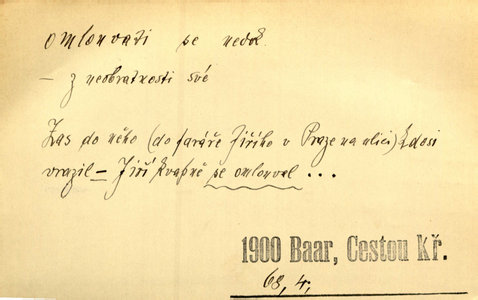 omlouvati se nedok.
– z neobratnosti své
Zas do něho (do faráře Jiřího v Praze na ulici) kdosi
vrazil – Jiří kvapně se omlouval ...
1900 Baar, Cestou Kř.
68, 4,